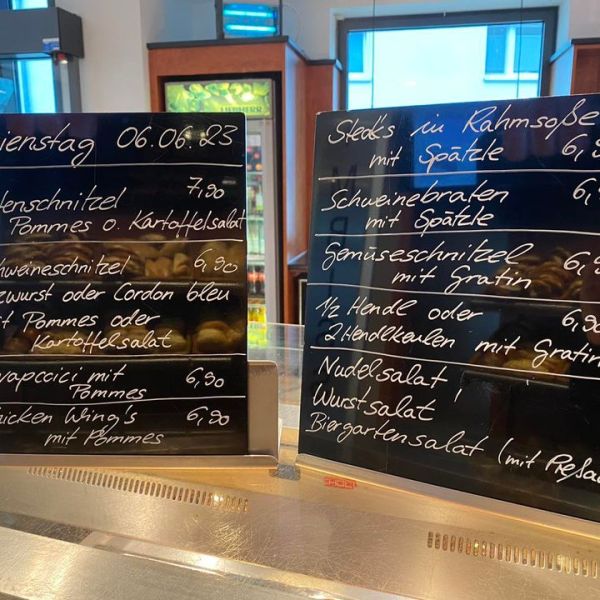 ienstag 06.06.23
7,90
tenschnitzel
Pommes o. Kartoffelsalat
hweineschnitzel 6,90
zwurst oder Cordon bleu
it Pommes oder
Kartoffelsalat
vapccici mit 6,90
Pommes
hicken Wing's 6,90
mit Pommes
LIEBHERR
Steaks in Rahmsoße
mit Spätzle 6,9
Schweinebraten 6,9
mit Spätzle
Gemüseschnitzel 6,9
mit Gratin
1/2 Hendl oder 6,90
2 Hendlkeulen mit Gratin
Nudelsalat
Wurstsalat
Biergartensalat (mit Preßsa